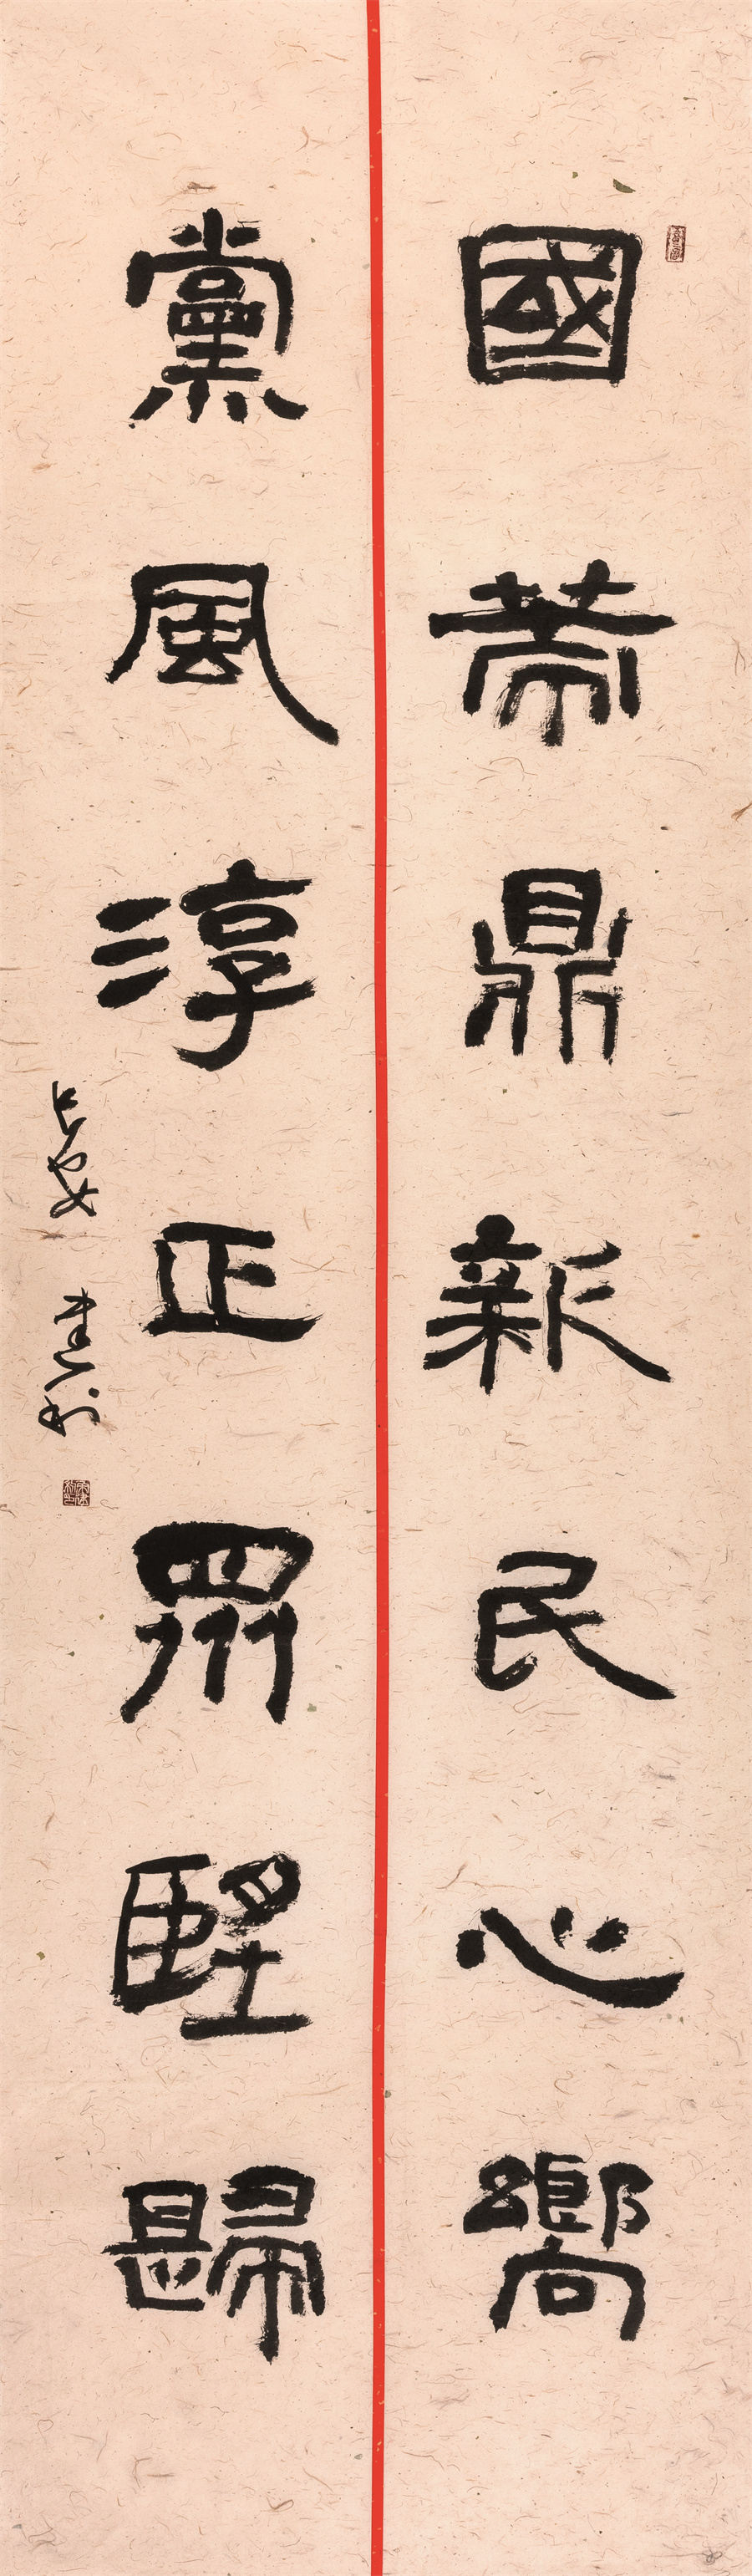 國鼎新民心嚮
黨風淳正眾望歸
長安